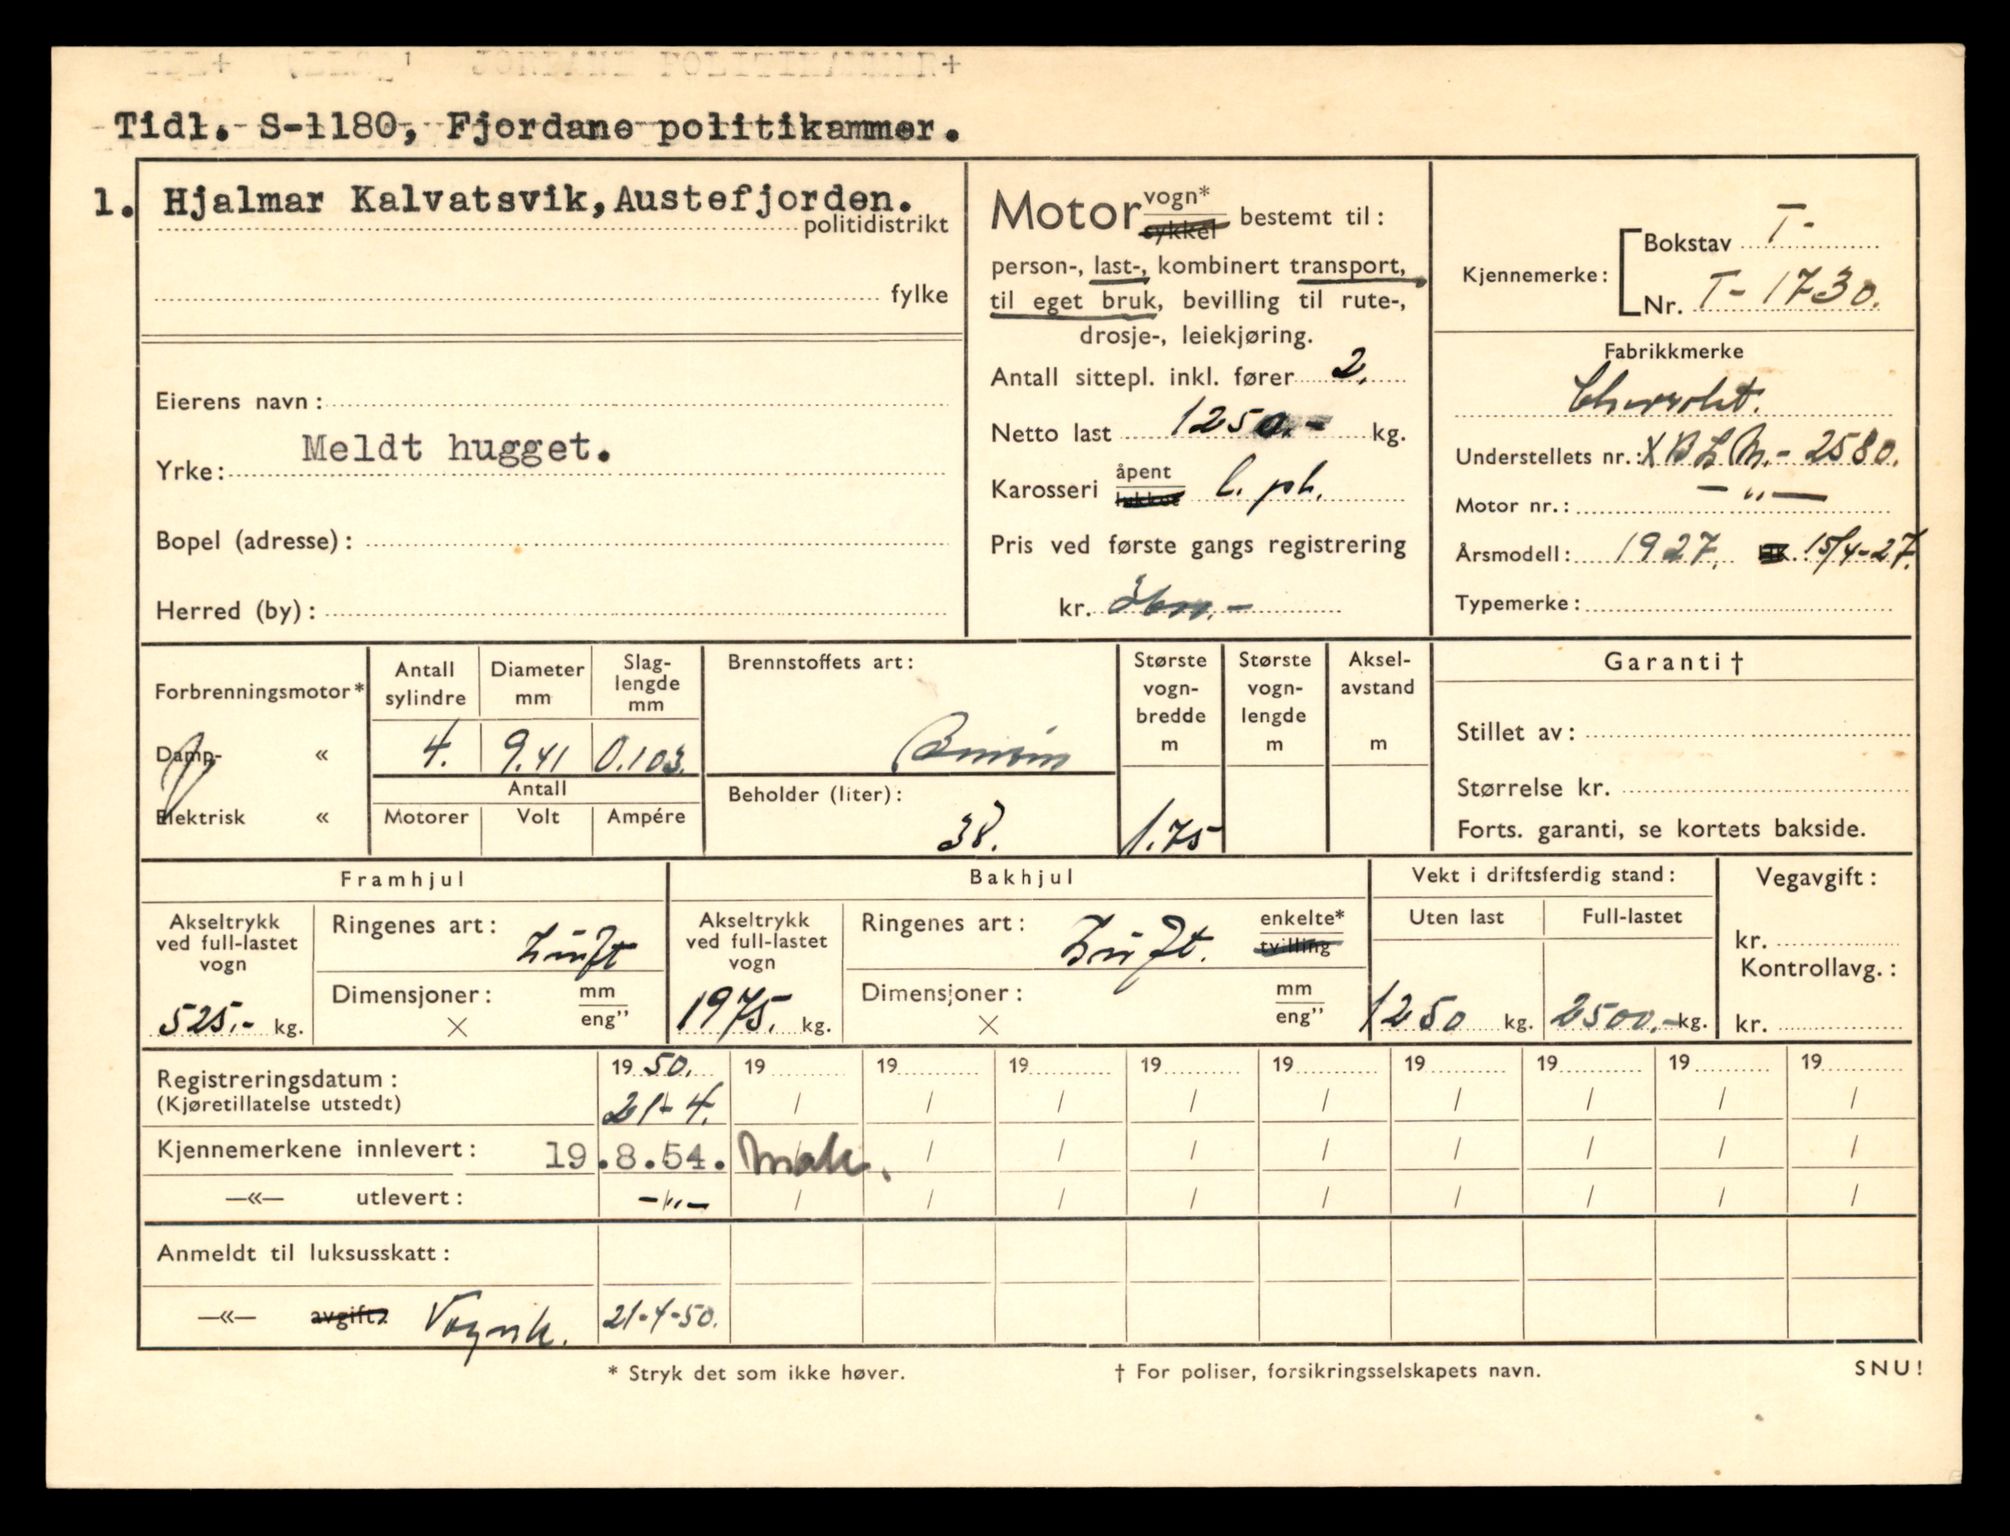 Tidl. S-1180, Fjordane politikammer.
1. Hjalmar Kalvatsvik, Austefjorden.
politidistrikt
fylke
Eierens navn:
Meldt hugget.
Yrke:
Bopel (adresse):
Herred (by):
Motor vogn* sykkel bestemt til:
person-, last-, kombinert transport,
til eget bruk, bevilling til rute-,
drosje-, leiekjøring.
Antall sittepl. inkl. fører 2.
Netto last 1250.- kg.
Karosseri åpent lukket l. pl.
Pris ved første gangs registrering
kr.
Kjennemerke: Bokstav T-
Nr. T-1730.
Fabrikkmerke
Chevrolet.
Understellets nr.: XBLM.-2580.
Motor nr.: — " —
Årsmodell: 1927. 15/4-27.
Typemerke:
Forbrenningsmotor*
Damp- «
Elektrisk «
Antall sylindre
4.
Diameter mm
9.41
Slaglengde mm
0.103.
Antall
Motorer Volt Ampére
Brennstoffets art:
Bensin
Beholder (liter):
38.
Største vognbredde m
1.75
Største vognlengde m
Akselavstand m
Garanti †
Stillet av:
Størrelse kr.
Forts. garanti, se kortets bakside.
Framhjul
Akseltrykk ved full-lastet vogn
525.- kg.
Ringenes art: Luft
Dimensjoner: mm eng"
×
Bakhjul
Akseltrykk ved full-lastet vogn
1975. kg.
Ringenes art: Luft. enkelte* tvilling
Dimensjoner: mm eng"
×
Vekt i driftsferdig stand:
Uten last Full-lastet
1250 kg. 2500.- kg.
Vegavgift:
kr.
Kontrollavg.:
kr.
19 50. 19 19 19 19 19 19 19 19 19
Registreringsdatum:
(Kjøretillatelse utstedt) 21-4. / / / / / / / / /
Kjennemerkene innlevert: 19.8.54. mak. / / / / / / / /
—«— utlevert: -"- / / / / / / / / /
Anmeldt til luksusskatt:
—«— avgift: Vognsk. 21-4-50.
* Stryk det som ikke høver. † For poliser, forsikringsselskapets navn. SNU!